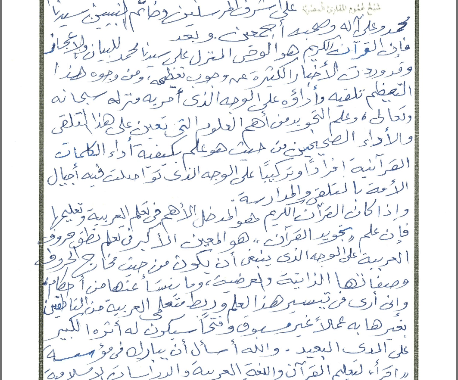 على أشرف المرسلين وخاتم النبيين سيدنا
محمد وعلى آله وصحبه أجمعين. وبعد
فإن القرآن الكريم هو الوحى المنزل على سيدنا محمد للبيان والإعجاز
وقد وردت الأخبار الكثيرة عن وجوب تعظيمه، ومن وجوه هذا
التعظيم تلقيه وأداؤه على الوجه الذى أمر به منزله سبحانه
وتعالى، وعلم التجويد من أهم العلوم التى تعين على هذا التلقى
والأداء الصحيحين من حيث هو علم بكيفية أداء الكلمات
القرآنية إفراداً وتركيباً على الوجه الذى تواصلت فيه أجيال
الأمة بالتلقى والمدارسة.
وإذا كان القرآن الكريم هو المدخل الأهم فى تعلم العربية وتعليمها
فإن علم "تجويد القرآن" هو المعين الأكبر فى تعلم نطق حروف
العربية على الوجه الذى ينبغى أن يكون من حيث مخارج الحروف
وصفاتها الذاتية والعرضية، وما ينشأ عنها من أحكام،
وإنى أرى فى تيسير هذا العلم وربط متعلمى العربية من الناطقين
بغيرها به عملاً غير مسبوق وفتحاً سيكون له أثره الكبير
على المدى البعيد. والله أسأل أن يبارك فى مؤسسة
"اقرأ" لتعليم القرآن واللغة العربية والدراسات الإسلامية